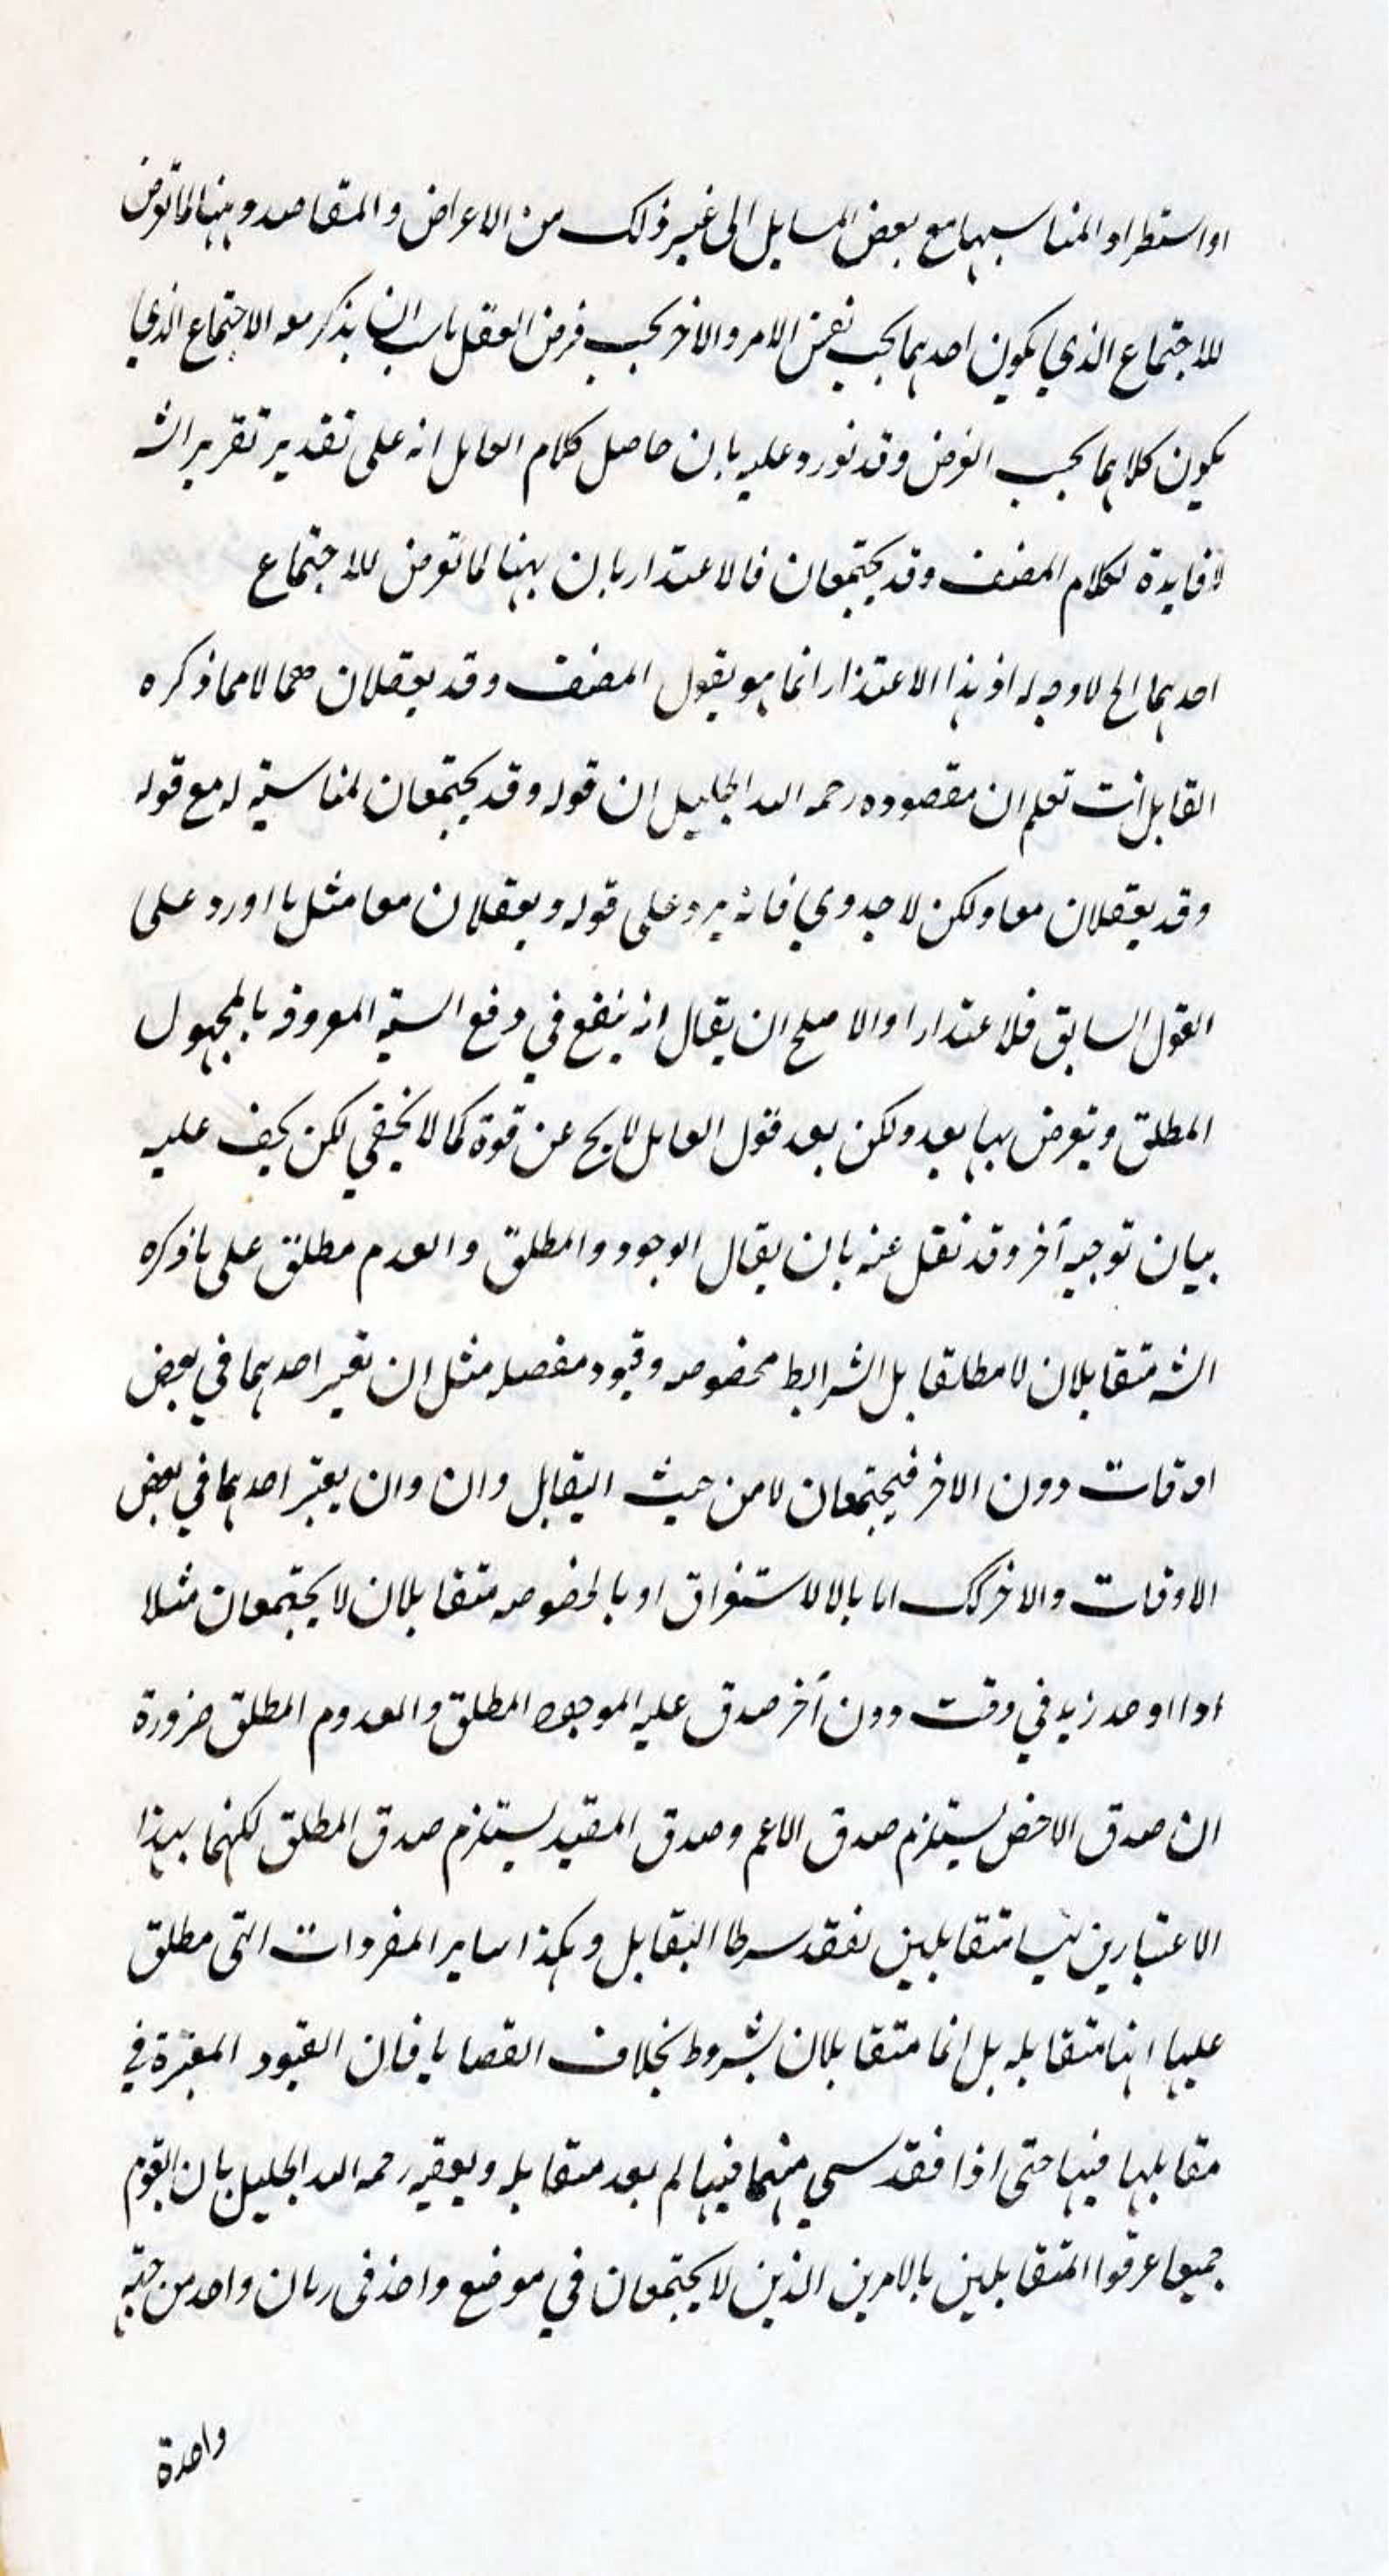 او استطراد المناسبها مع بعض المسايل الى غير ذلك من الاعراض والمقاصد وههنا لما تعرض
للاجتماع الذي يكون احدهما بحسب نفس الامر والاخر بحسب فرض العقل ناسب ان يذكر معه الاجتماع الذي
يكون كلاهما بحسب الفرض وقد نورد عليه بان حاصل كلام القايل انه على تقدير تقرير الش
لا فايدة لكلام المصنف وقد يجتمعان فالاعتذار بان ههنا لما تعرض للاجتماع
احدهما الخ لا وجه له اذ هذا الاعتذار انما هو يقول المصنف وقد يعقلان معا لا مما ذكره
القايل انت تعلم ان مقصوده رحمه الله الجليل ان قوله وقد يجتمعان لمناسبته له مع قوله
وقد يعقلان معا ولكن لا جدوي فانه يرد على قوله ويعقلان معا مثل ما اورد على
القول السابق فلا اعتدارا والاصلح ان يقال انه ينفع في دفع الشبهة المعروفة بالمجهول
المطلق ويعرض بها بعد ولكن بعد قول القايل لا يخ عن قوة كما لا يخفي لكن كيف عليه
بيان توجيه آخر وقد نقل عنه بان يقال الوجود والمطلق والعدم مطلق على ما ذكره
الش متقابلان لا مطلقا بل الشرايط مخصوصه وقيود مفصله مثل ان تعبر احدهما في بعض
اوقات دون الاخر فيجتمعان لا من حيث التقابل وان وان يعتبر احدهما في بعض
الاوقات والاخر كك اما بالالاستغراق او بالخصوصه متقابلان لا يجتمعان مثلا
اذا اوجد زيد في وقت دون آخر صدق عليه الموجود المطلق والمعدوم المطلق ضرورة
ان صدق الاخص يستلزم صدق الاعم وصدق المقيد يستلزم صدق المطلق لكنهما بهذا
الاعتبارين ليسا متقابلين لفقد سرطا التقابل وهكذا ساير المفردات التى مطلق
عليها انها متقابله بل انما متقابلان بشروط بخلاف القضايا فان القيود المعتبرة في
مقابلها فيها حتى اذا فقد سي منهما فيها لم يعد متقابله ويعقبه رحمه الله الجليل بان القوم
جميعا عرفوا المتقابلين بالامرين الذين لا يجتمعان في موضع واحد فى زمان واحد من جهة
واحدة